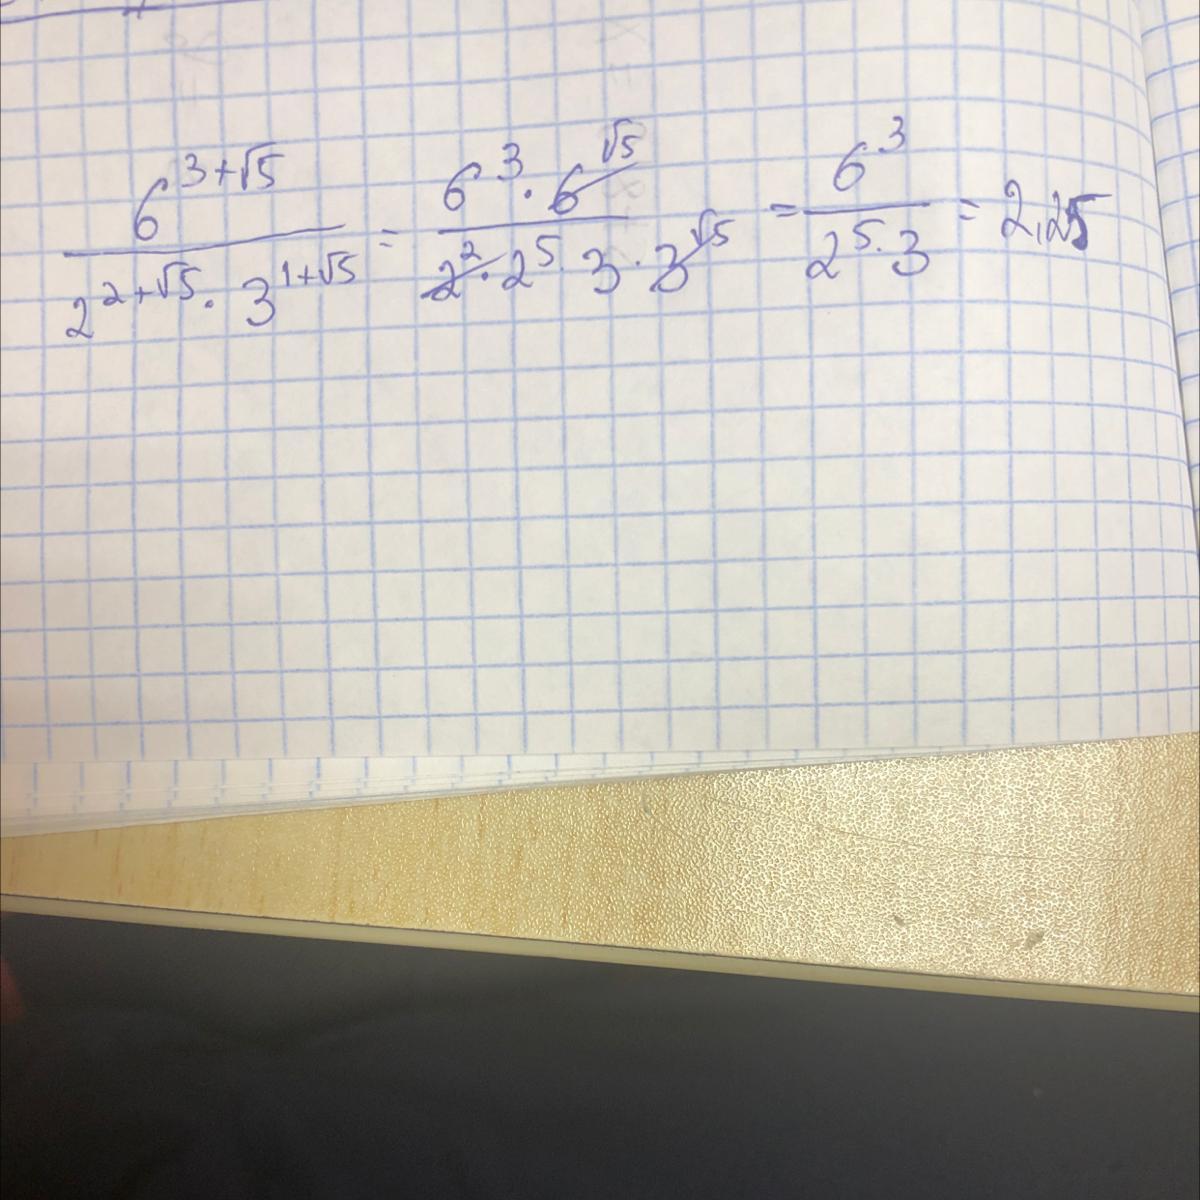 6^{3+√5} / (2^{2+√5} · 3^{1+√5}) = (6^3 · 6^{√5}) / (2^2 · 2^5 · 3 · 3^{√5}) = 6^3 / (2^5 · 3) = 2,25